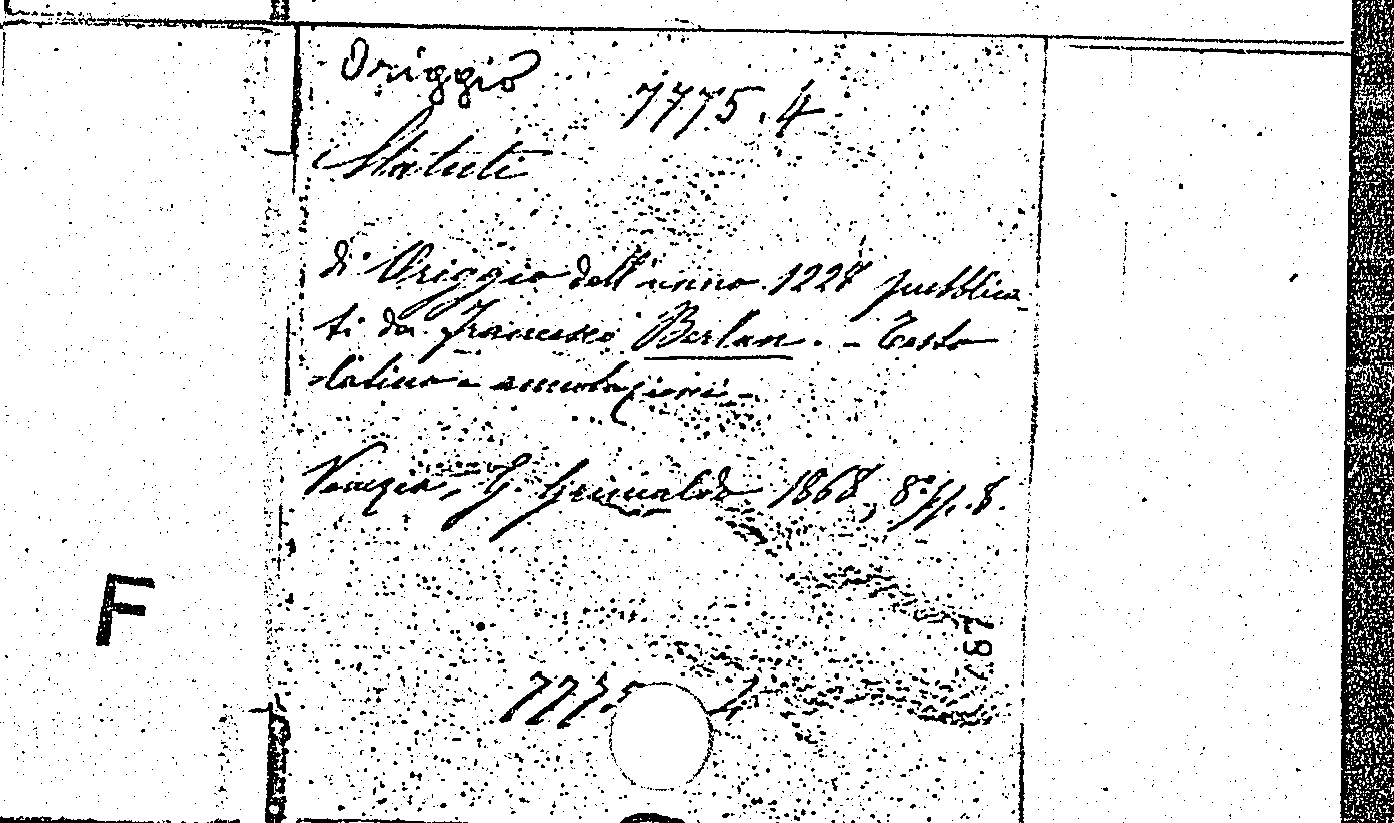 Origgio
7775.4
Statuti
di Origgio dell'anno 1228 pubblica
ti da Francesco Berlan. - Testo
latino e annotazioni -
Venezia, G. Grimaldo 1868, 8° p. 8.
F
187
7775 4